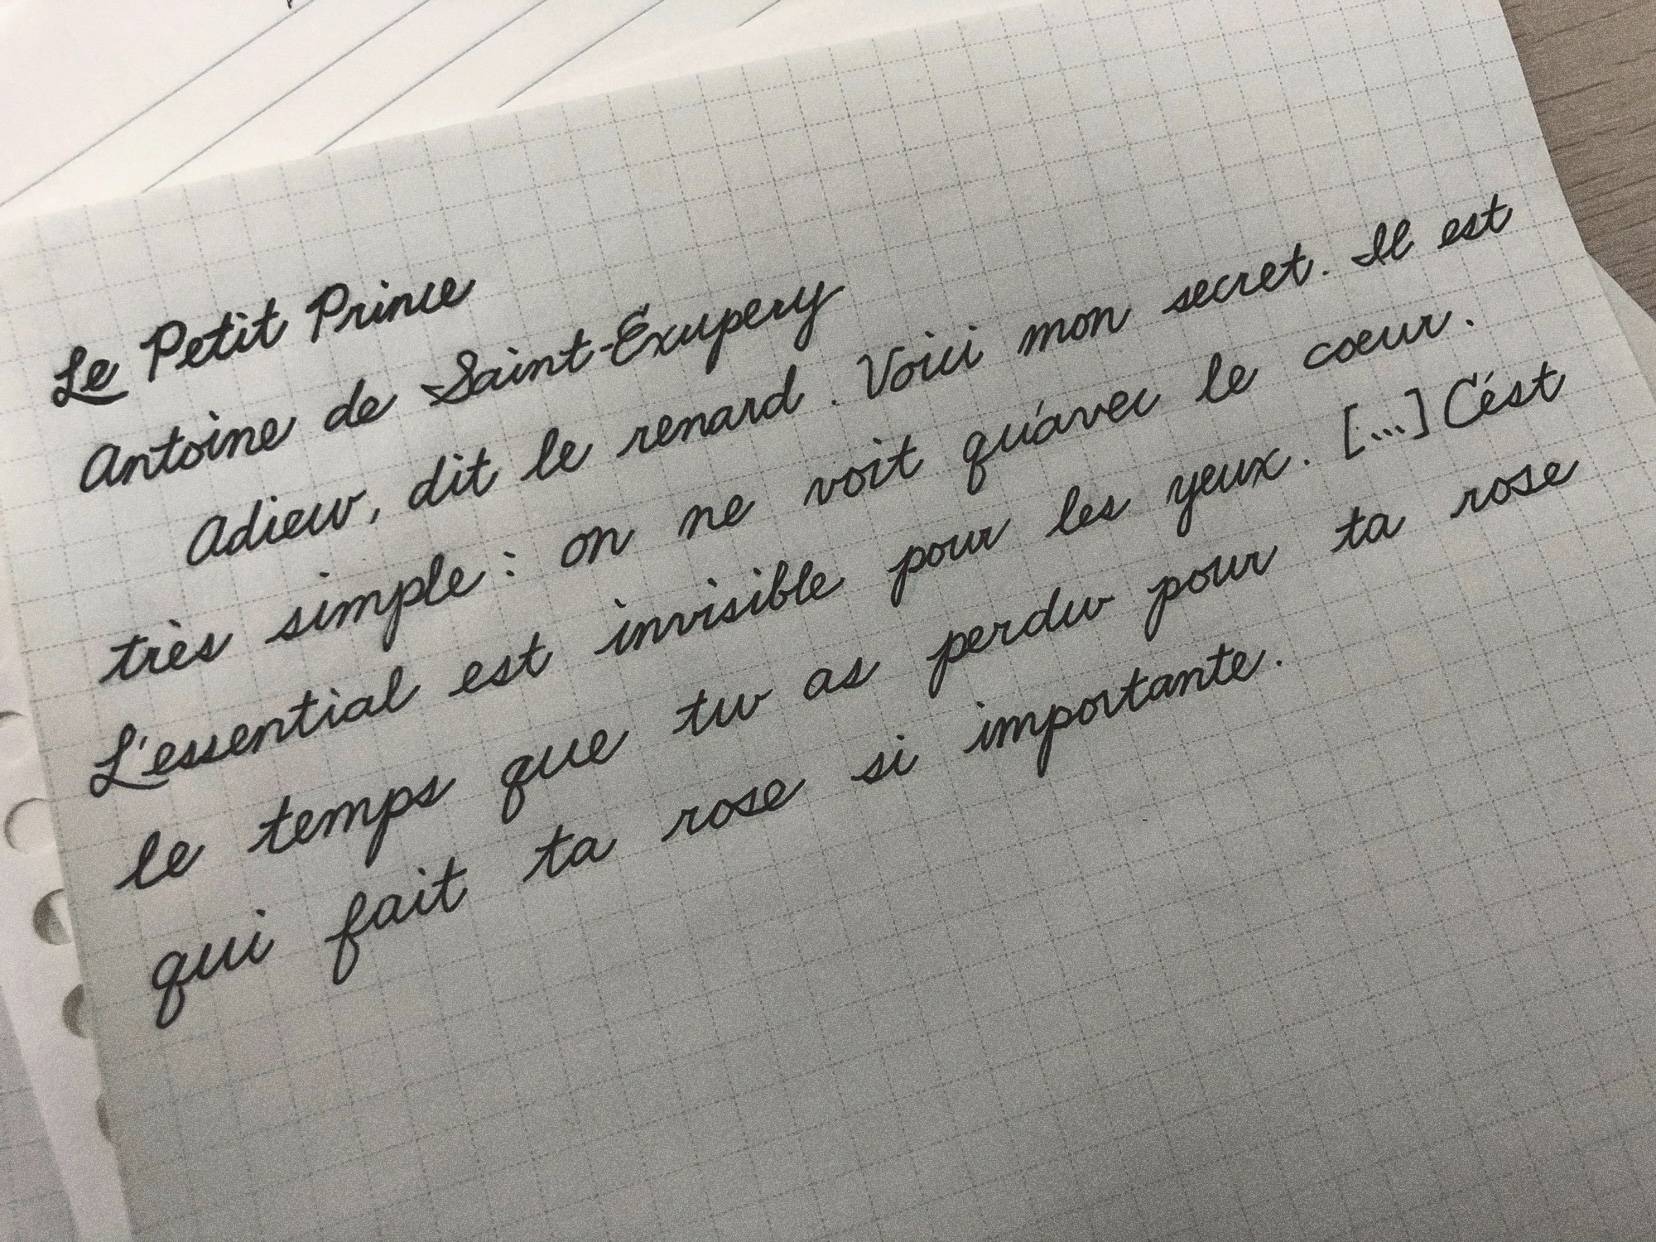 Le Petit Prince
Antoine de Saint-Exupery
Adieu, dit le renard. Voici mon secret. Il est
très simple: on ne voit qu'avec le cœur.
L'essential est invisible pour les yeux. [...] C'est
le temps que tu as perdu pour ta rose
qui fait ta rose si importante.